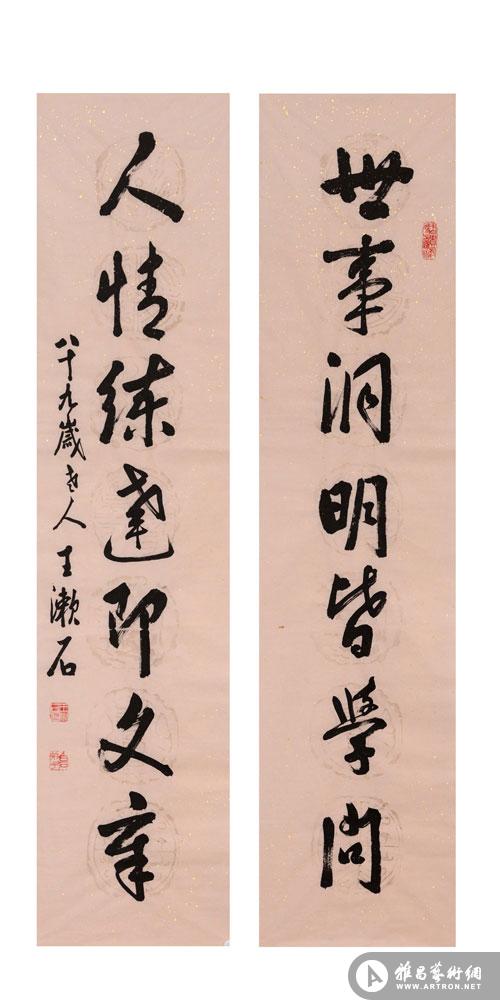 世事洞明皆學問
人情練達即文章
八十九歲老人王漱石
雅昌藝術網
WWW.ARTRON.NET